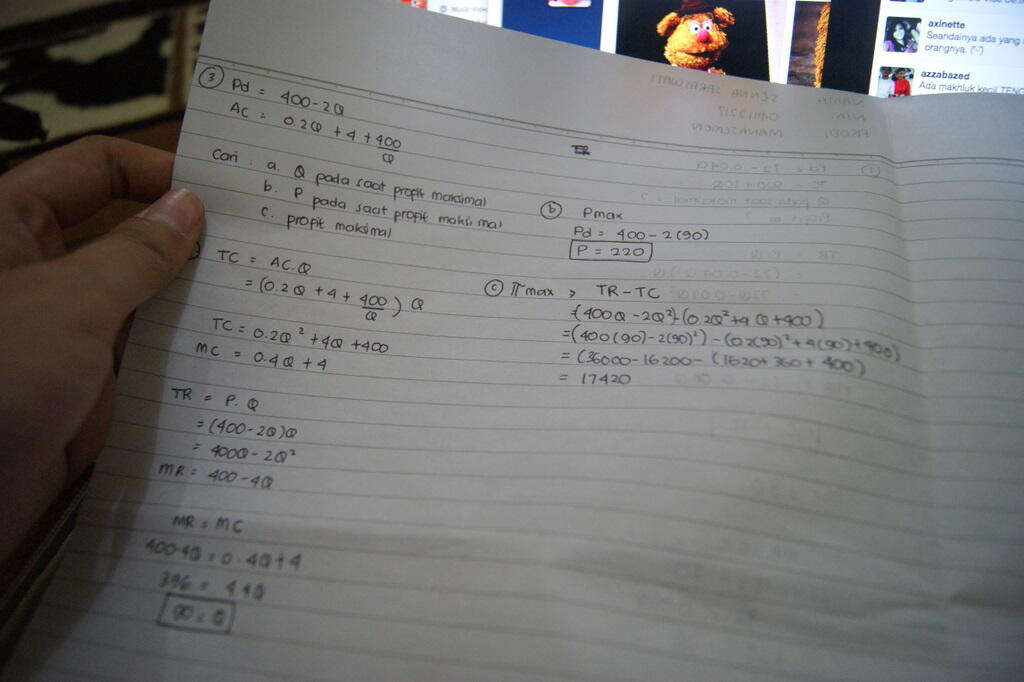 Music Video
axlnette
Seandainya ada yang
orangnya. (˘-˘)
azzabazed
Ada makhluk kecil TENG
③ Pd = 400-2Q
AC = 0.2Q + 4 + 400/Q
Cari : a. Q pada saat profit maksimal
b. P pada saat profit maksimal
c. profit maksimal
TC = AC.Q
= (0.2Q + 4 + 400/Q) Q
TC = 0.2Q² + 4Q + 400
MC = 0.4Q + 4
TR = P. Q
= (400-2Q)Q
= 400Q - 2Q²
MR = 400-4Q
MR = MC
400-4Q = 0.4Q+4
396 = 4.4Q
90 = Q
ⓑ Pmax
Pd = 400 - 2(90)
P = 220
ⓒ πmax > TR-TC
=(400Q - 2Q²)-(0.2Q²+4Q+400)
=(400(90)-2(90)²) - (0.2(90)²+4(90)+400)
= (36000-16200- (1620+360+400)
= 17420